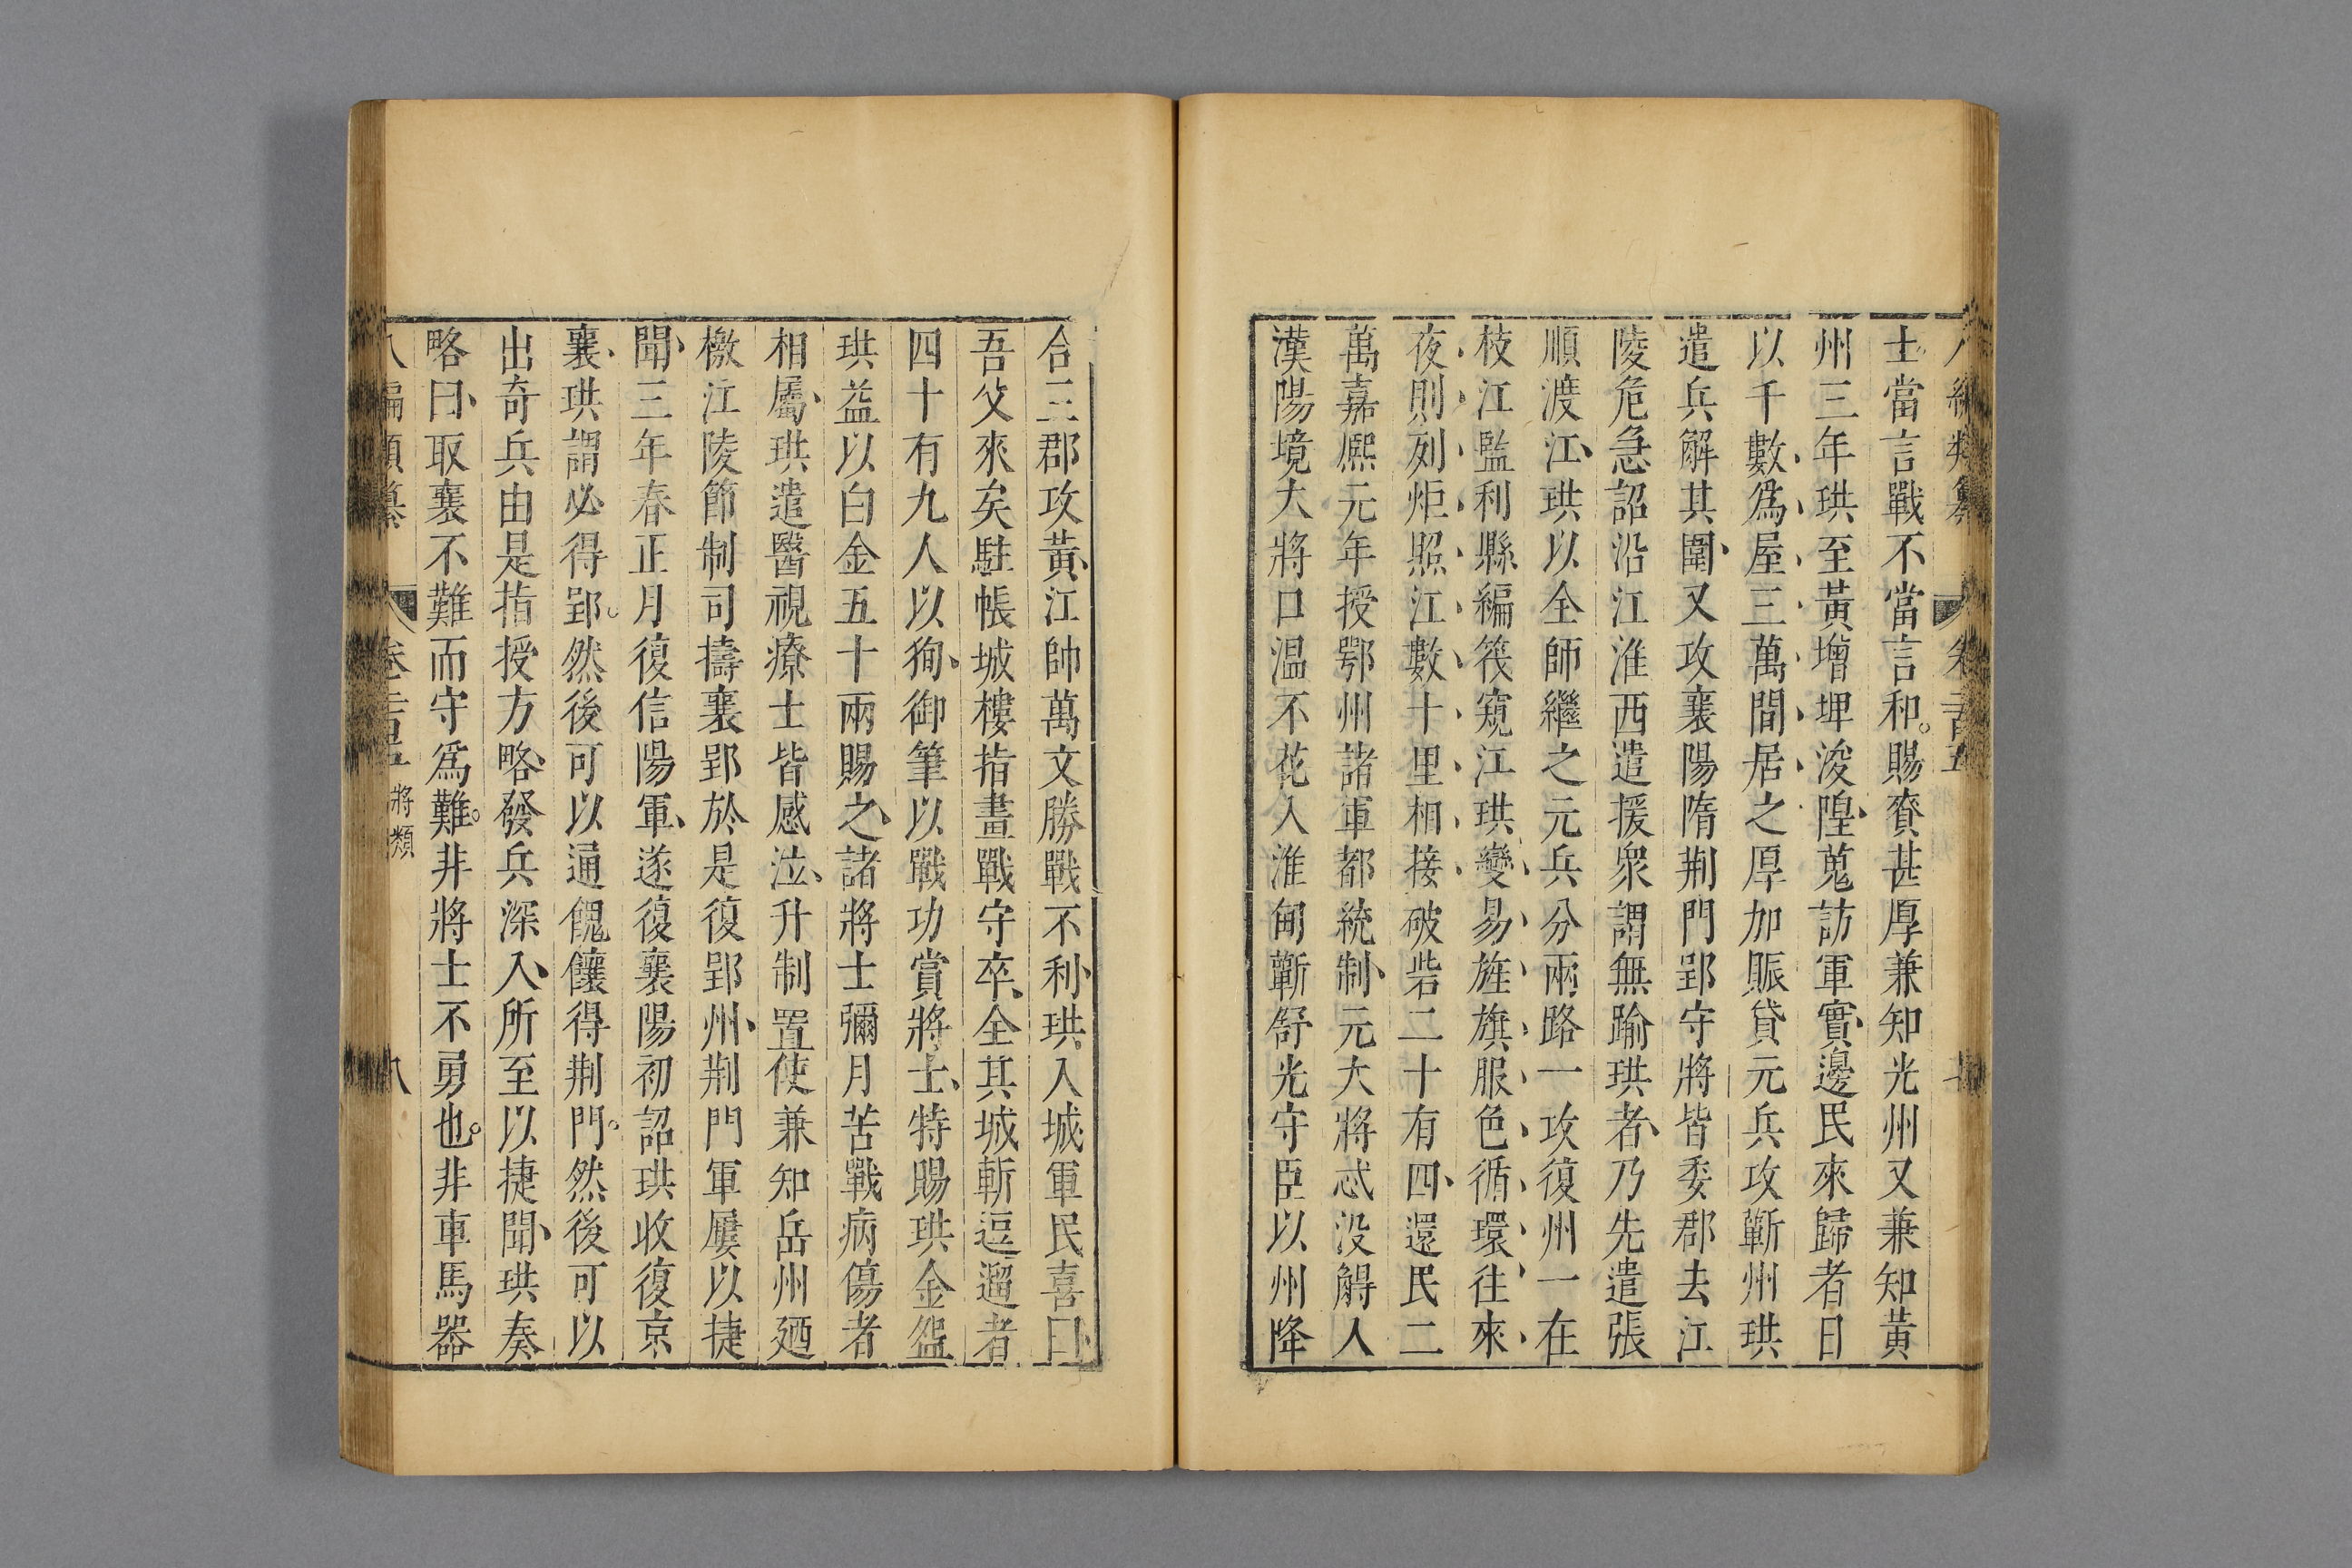 士當言戰不當言和。賜賚甚厚兼知光州又兼知黃
州三年珙至黃增埤浚隍蒐訪軍實邊民來歸者日
以千數爲屋三萬間居之厚加賑貸元兵攻蘄州珙
遣兵解其圍又攻襄陽隋荆門郢守將皆委郡去江
陵危急詔沿江淮西遣援衆謂無踰珙者乃先遣張
順渡江珙以全師繼之元兵分兩路一攻復州一在
枝江監利縣編筏窺江珙變易旌旗服色循環往來
夜則列炬照江數十里相接破砦二十有四還民二
萬嘉熈元年授鄂州諸軍都統制元大將忒没䚟入
漢陽境大將口溫不花入淮甸蘄舒光守臣以州降
合三郡攻黃江帥萬文勝戰不利珙入城軍民喜曰
吾父來矣駐帳城樓指畫戰守卒全其城斬逗遛者
四十有九人以狥御筆以戰功賞將士特賜珙金盌
珙益以白金五十兩賜之諸將士彌月苦戰病傷者
相屬珙遣醫視療士皆感泣升制置使兼知岳州廼
檄江陵節制司擣襄郢於是復郢州荆門軍屢以捷
聞三年春正月復信陽軍遂復襄陽初詔珙收復京
襄珙謂必得郢。然後可以通餽饟得荆門。然後可以
出奇兵由是指授方略發兵深入所至以捷聞珙奏
略曰取襄不難而守爲難。非將士不勇也。非車馬器
八編類纂 卷 將類 八